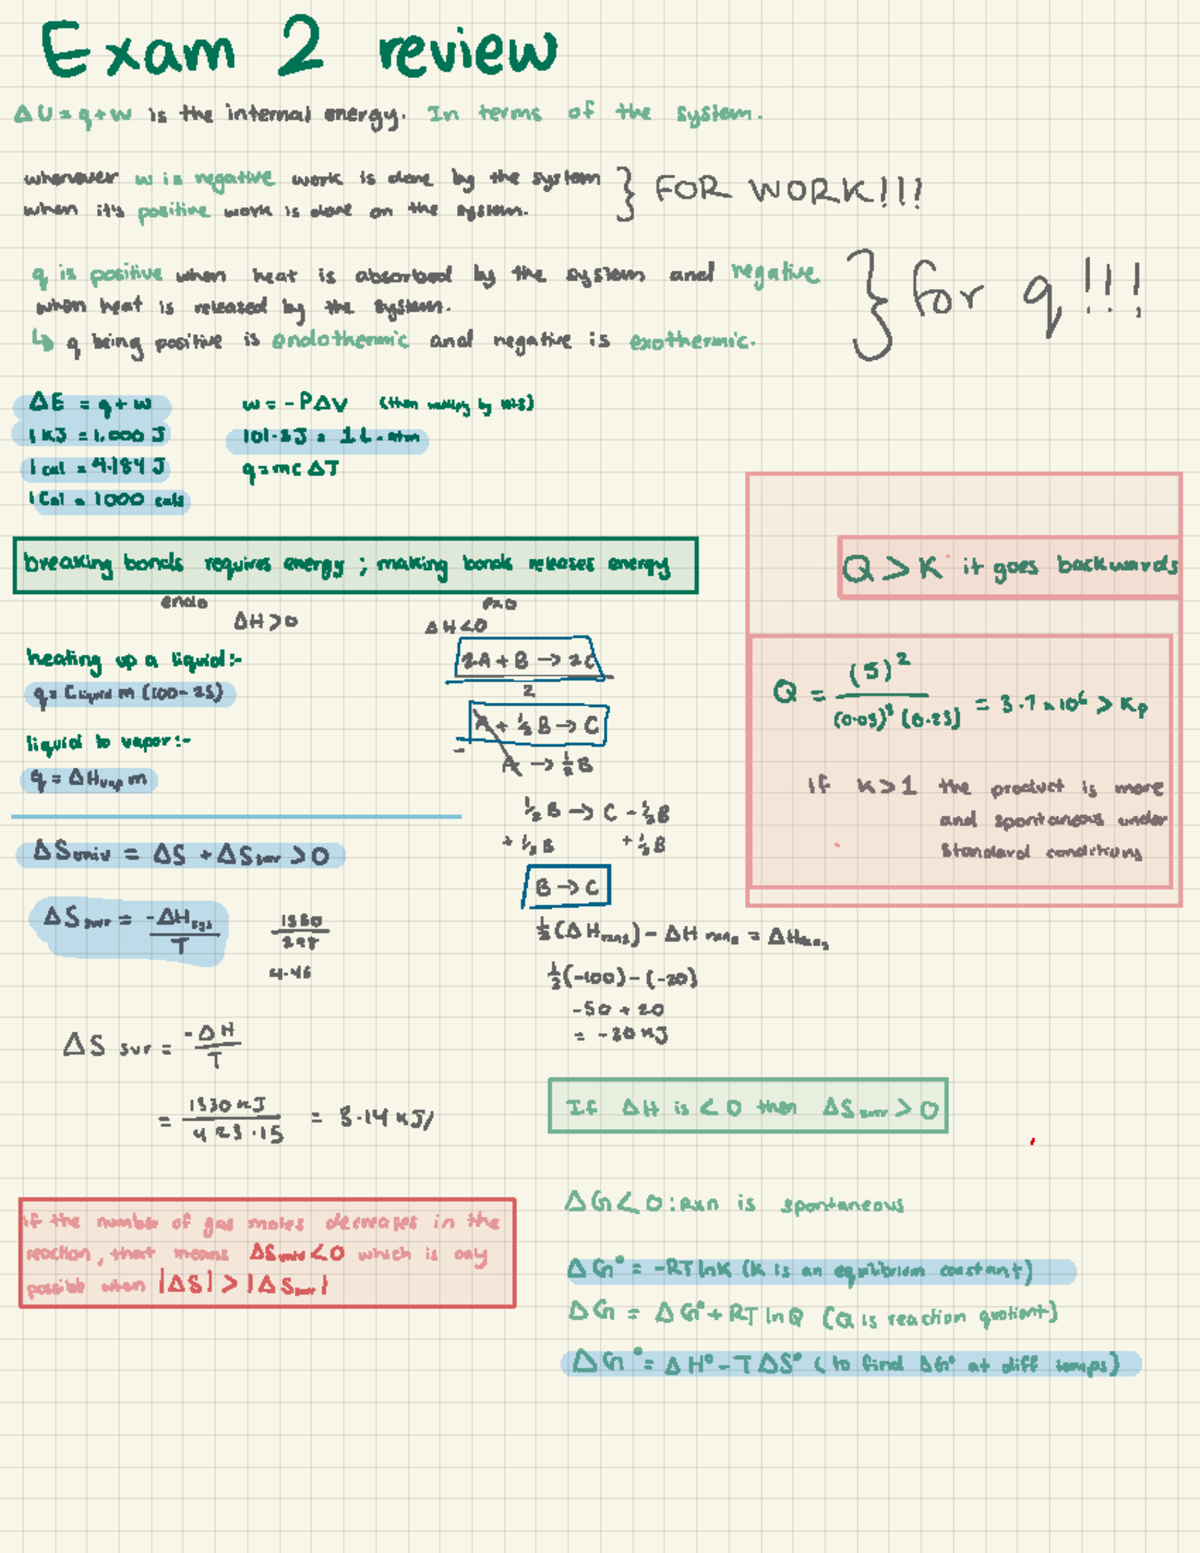 Exam 2 review
ΔU = q + w is the internal energy. In terms of the system.
whenever w is negative work is done by the system } FOR WORK!!!
when it's positive work is done on the system.
q is positive when heat is absorbed by the system and negative } for q!!!
when heat is released by the system.
↳ q being positive is endothermic and negative is exothermic.
ΔE = q + w
1 KJ = 1,000 J
1 cal = 4.184 J
1 Cal = 1000 cals
w = -PΔV (then multiply by
= 1 L · atm
q = mcΔT
breaking bonds requires energy ; making bonds releases energy
endo
ΔH > 0
exo
ΔH < 0
heating up a liquid:-
q = C liquid m (100 - 25)
liquid to vapor:-
q = ΔHvap m
2A + B → 2C
2
A + ½B → C
-
A → ½B
½B → C - ½B
+ ½B + ½B
B → C
½(ΔHrxn1) - ΔHrxn2 = ΔHrxn3
½(-100) - (-20)
-50 + 20
= -30 KJ
Q > K it goes backwards
Q = (5)² / (0.03)³ (0.23) = 3.7 x 10⁶ > Kp
if K > 1 the product is more
and spontaneous under
standard conditions
ΔSuniv = ΔS + ΔSsurr > 0
ΔSsurr = -ΔHsys / T
1330
298
4.46
ΔS sur = -ΔH / T
= 1330 KJ / 423.15 = 3.14 KJ/
If ΔH is < 0 then ΔSsurr > 0
if the number of gas moles decreases in the
reaction, that means ΔSuniv < 0 which is only
possible when |ΔS| > |ΔSsurr|
ΔG < 0 : rxn is spontaneous
ΔG° = -RT ln K (K is an equilibrium constant)
ΔG = ΔG° + RT ln Q (Q is reaction quotient)
ΔG° = ΔH° - TΔS° (to find ΔG° at diff temps)